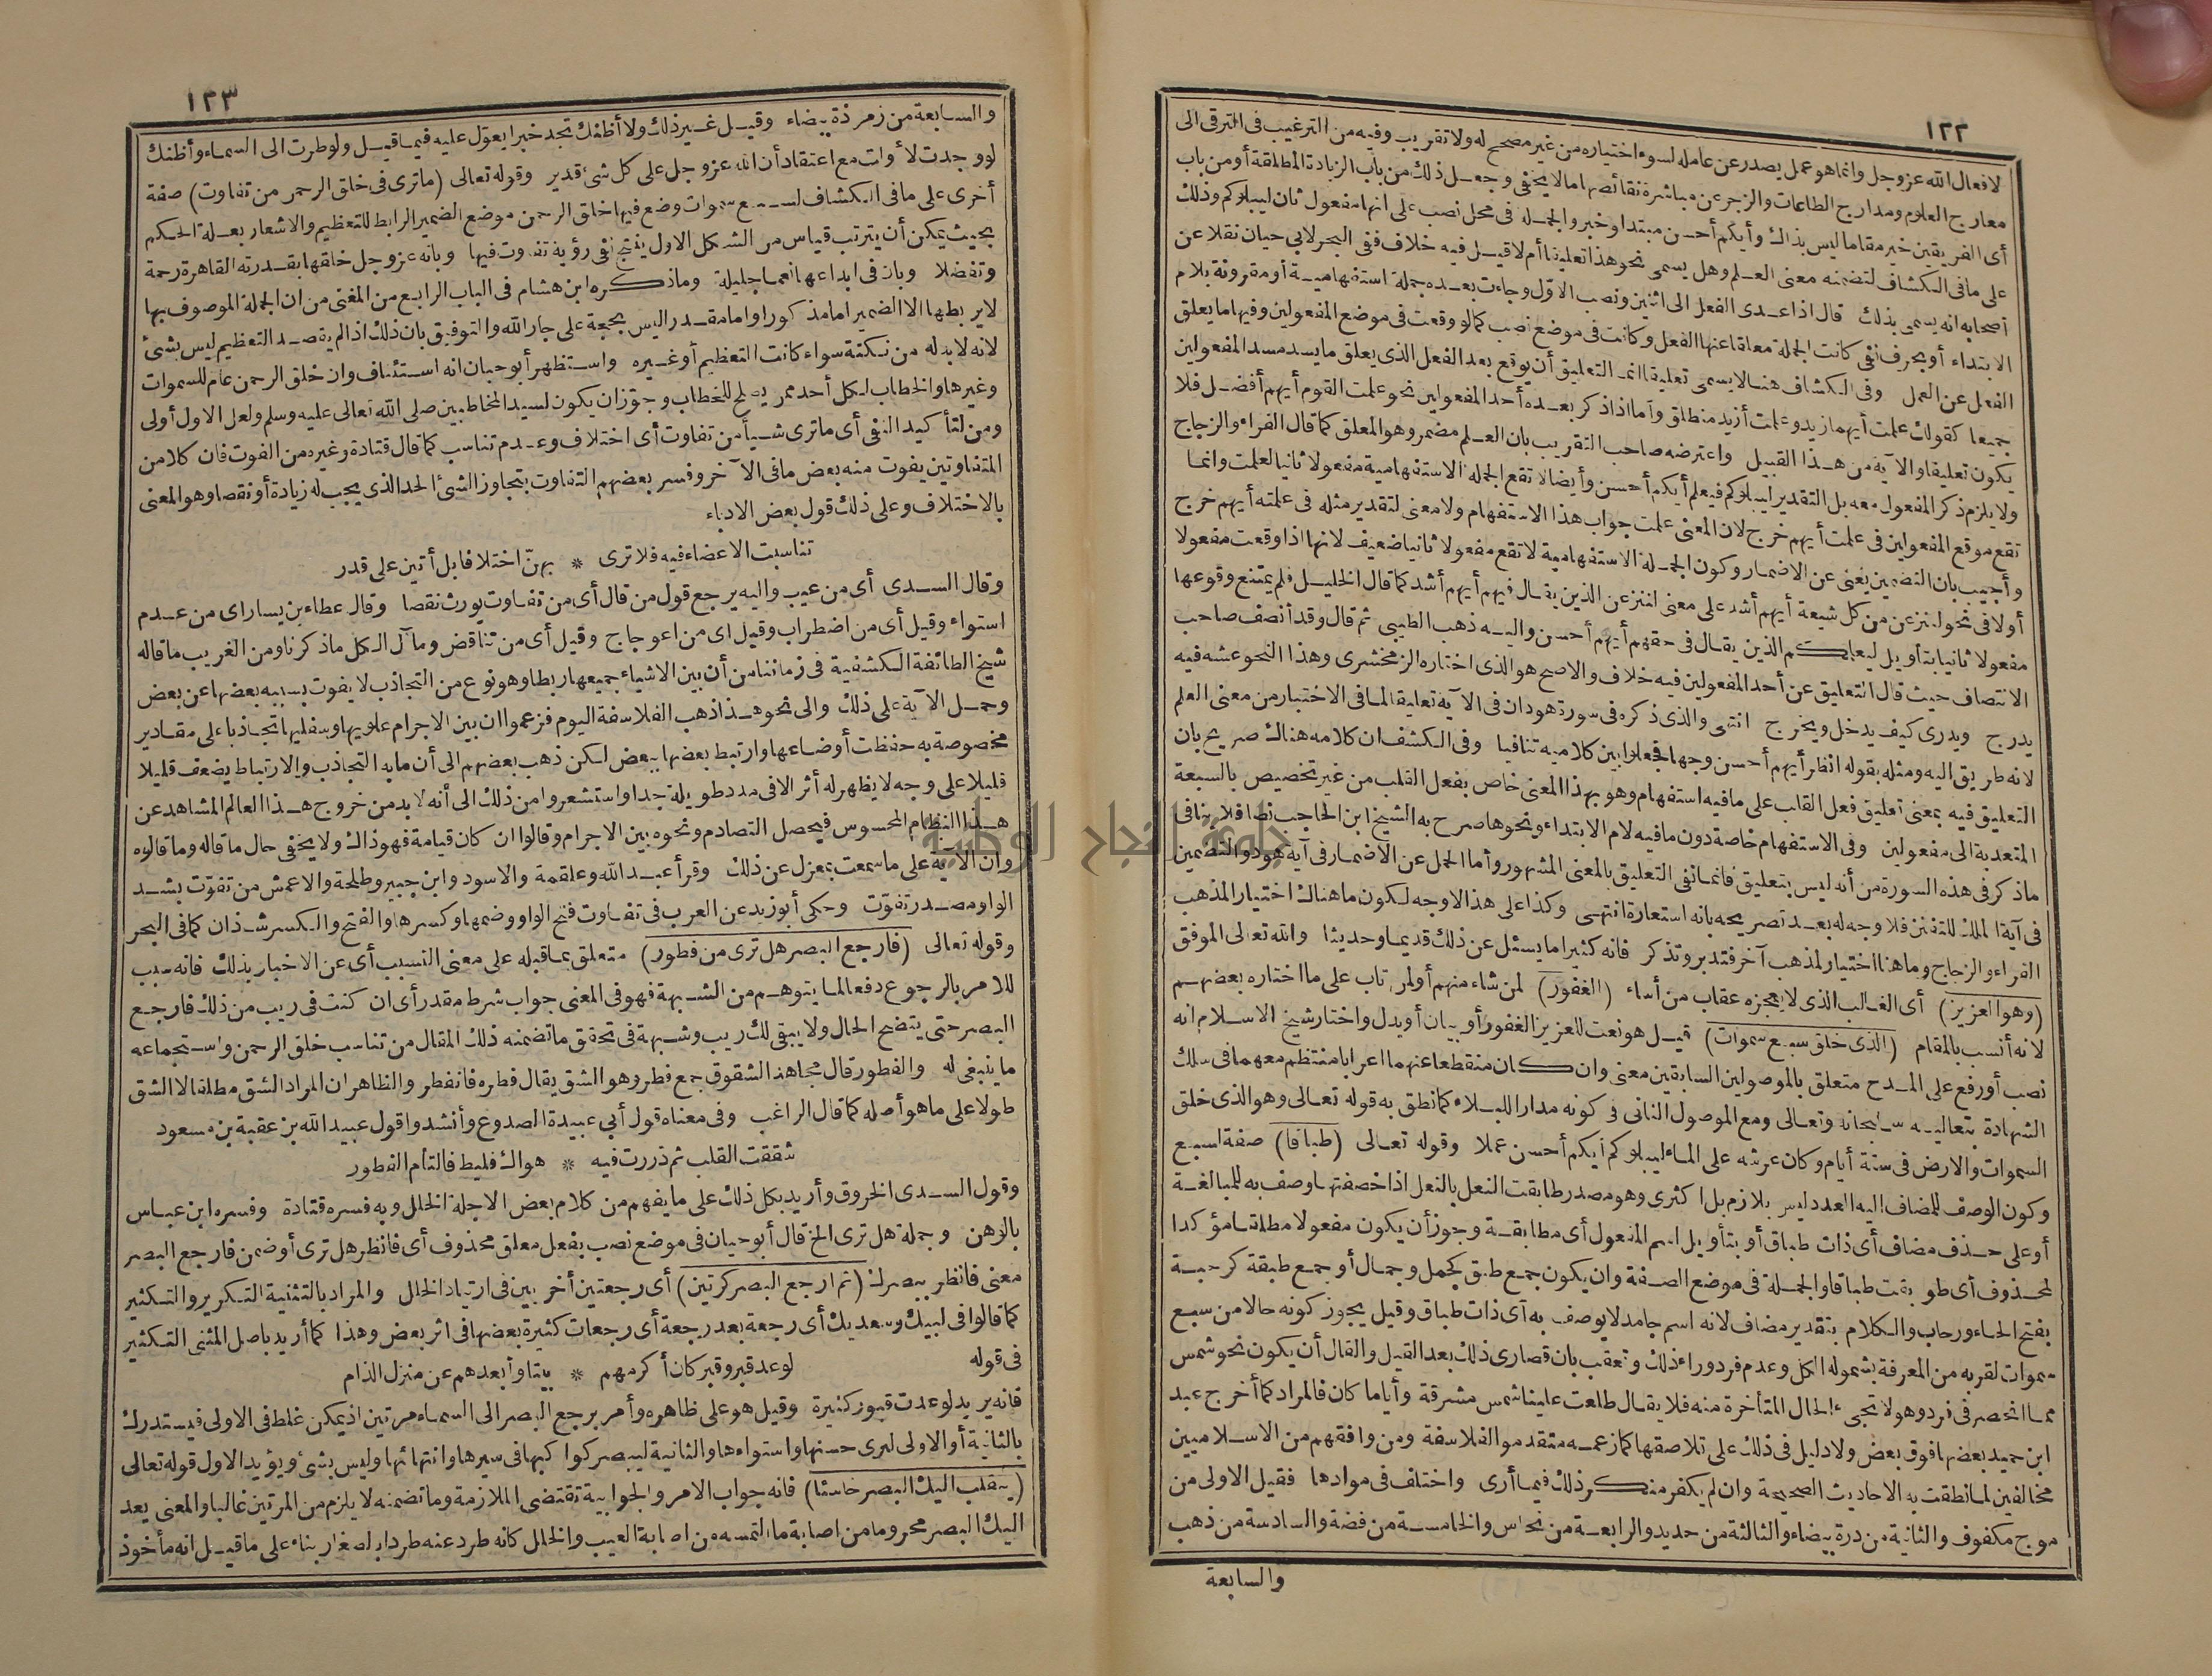 ١٢٢
لافعال الله عز وجل وانما هو عمل يصدر عن عامله لسوء اختياره من غير مصحح له ولا تقريب وفيه من الترغيب فى الترقى الى
معارج العلوم ومدارج الطاعات والزجر عن مباشرة نقائصها ما لا يخفى وجعل ذلك من باب الزيادة المطلقة أو من باب
أى الفريقين خير مقاما ليس بذاك وأيكم أحسن مبتدا وخبر والجملة فى محل نصب على انها مفعول ثان ليبلوكم وذلك
على ما فى الكشاف لتضمنه معنى العلم وهل يسمى نحو هذا تعليقا أم لا قيل فيه خلاف ففى البحر لابى حيان نقلا عن
أصحابه انه يسمى بذلك قال اذا عدى الفعل الى اثنين ونصب الاوّل وجاءت بعده جملة استفهامية أو مقرونة بلام
الابتداء أو بحرف نفى كانت الجملة معلقا عنها الفعل وكانت فى موضع نصب كما لو وقعت فى موضع المفعولين وفيها ما يعلق
الفعل عن العمل وفى الكشاف هنا لا يسمى تعليقا انما التعليق أن يوقع بعد الفعل الذى يعلق ما يسد مسد المفعولين
جميعا كقولك علمت أيهما زيد وعلمت أزيد منطلق وأما اذا ذكر بعده أحد المفعولين نحو علمت القوم أيهم أفضل فلا
يكون تعليقا والآية من هذا القبيل واعترضه صاحب التقريب بان العلم مضمر وهو المعلق كما قال الفراء والزجاج
ولا يلزم ذكر المفعول معه بل التقدير ليبلوكم فيعلم أيكم أحسن وأيضا لا تقع الجملة الاستفهامية مفعولا ثانيا لعلمت وانما
تقع موقع المفعولين فى علمت أيهم خرج لان المعنى علمت جواب هذا الاستفهام ولا معنى لتقدير مثله فى علمته أيهم خرج
وأجيب بان التضمين يغنى عن الاضمار وكون الجملة الاستفهامية لا تقع مفعولا ثانيا ضعيف لانها اذا وقعت مفعولا
أولا فى نحو لننزعن من كل شيعة أيهم أشد على معنى لننزعن الذين يقال فيهم أيهم أشد كما قال الخليل فلم يمتنع وقوعها
مفعولا ثانيا بتأويل ليعلمكم الذين يقال فى حقهم أيهم أحسن واليه ذهب الطيبى ثم قال وقد أنصف صاحب
الانتصاف حيث قال التعليق عن أحد المفعولين فيه خلاف والاصح هو الذى اختاره الزمخشرى وهذا النحو عشه فيه
يدرج ويدرى كيف يدخل ويخرج انتهى والذى ذكره فى سورة هود ان فى الآية تعليقا لما فى الاختبار من معنى العلم
لانه طريق اليه ومثله بقوله انظر أيهم أحسن وجها فجعلوا بين كلاميه تنافيا وفى الكشف ان كلامه هناك صريح بان
التعليق فيه بمعنى تعليق فعل القلب على ما فيه استفهام وهو بهذا المعنى خاص بفعل القلب من غير تخصيص بالسبعة
المتعدية الى مفعولين وفى الاستفهام خاصة دون ما فيه لام الابتداء ونحوها صرح به الشيخ ابن الحاجب نصا فلا ينافى
ما ذكر فى هذه السورة من أنه ليس بتعليق فانما نفى التعليق بالمعنى المشهور وأما الحمل عن الاضمار فى آية هود والتضمين
فى آية الملك للتفنن فلا وجه له بعد تصريحه بانه استعارة انتهى وكذا على هذا لا وجه لكون ما هناك اختيار المذهب
الفراء والزجاج وما هنا اختيار لمذهب آخر فتدبر وتذكر فانه كثيرا ما يسئل عن ذلك قديما وحديثا والله تعالى الموفق
(وهو العزيز) أى الغالب الذى لا يعجزه عقاب من أساء (الغفور) لمن شاء منهم أو لمن تاب على ما اختاره بعضهم
لانه أنسب بالمقام (الذى خلق سبع سموات) قيل هو نعت للعزيز الغفور أو بيان أو بدل واختار شيخ الاسلام انه
نصب أو رفع على المدح متعلق بالموصولين السابقين معنى وان كان منقطعا عنهما اعرابا منتظم معهما فى سلك
الشهادة بتعاليه سبحانه وتعالى ومع الموصول الثانى فى كونه مدار للبلاء كما نطق به قوله تعالى وهو الذى خلق
السموات والارض فى ستة أيام وكان عرشه على الماء ليبلوكم أيكم أحسن عملا وقوله تعالى (طباقا) صفة لسبع
وكون الوصف للمضاف اليه العدد ليس بلازم بل أكثرى وهو مصدر طابقت النعل بالنعل اذا خصفتها وصف به للمبالغة
أو على حذف مضاف أى ذات طباق أو بتأويل اسم المفعول أى مطابقة وجوز أن يكون مفعولا مطلقا مؤكدا
لمحذوف أى طوبقت طباقا والجملة فى موضع الصفة وان يكون جمع طبق كجمل وجمال أو جمع طبقة كرحبة
بفتح الحاء ورحاب والكلام بتقدير مضاف لانه اسم جامد لا يوصف به أى ذات طباق وقيل يجوز كونه حالا من سبع
سموات لقربه من المعرفة بشموله الكل وعدم فرد وراء ذلك وتعقب بان قصارى ذلك بعد القيل والقال أن يكون نحو شمس
مما انحصر فى فرد وهو لا تجىء الحال المتأخرة منه فلا يقال طلعت علينا شمس مشرقة وأياما كان فالمراد كما أخرج عبد
ابن حميد بعضها فوق بعض ولا دليل فى ذلك على تلاصقها كما زعمه متقدمو الفلاسفة ومن وافقهم من الاسلاميين
مخالفين لما نطقت به الاحاديث الصحيحة وان لم يكفر منكر ذلك فيما أرى واختلف فى موادها فقيل الاولى من
موج مكفوف والثانية من درة بيضاء والثالثة من حديد والرابعة من نحاس والخامسة من فضة والسادسة من ذهب
والسابعة
١٢٣
والسابعة من زمرذة بيضاء وقيل غير ذلك ولا أظنك تجد خبرا يعول عليه فيما قيل ولو طرت الى السماء وأظنك
لو وجدت لأولت مع اعتقاد أن الله عز وجل على كل شئ قدير وقوله تعالى (ما ترى فى خلق الرحمن من تفاوت) صفة
أخرى على ما فى الكشاف لسبع سموات وضع فيها خلق الرحمن موضع الضمير الرابط للتعظيم والاشعار بعلة الحكم
بحيث يمكن أن يترتب قياس من الشكل الاول ينتج نفى رؤية تفاوت فيها وبانه عز وجل خلقها بقدرته القاهرة رحمة
وتفضلا وبان فى ابداعها نعما جليلة وما ذكره ابن هشام فى الباب الرابع من المغنى من ان الجملة الموصوف بها
لا يربطها الا الضمير اما مذكورا واما مقدرا ليس بحجة على جار الله والتوفيق بان ذلك اذا لم يقصد التعظيم ليس بشئ
لانه لا بد له من نكتة سواء كانت التعظيم أو غيره واستظهر أبو حيان انه استئناف وان خلق الرحمن عام للسموات
وغيرها والخطاب لكل أحد ممن يصلح للخطاب وجوّز ان يكون لسيد المخاطبين صلى الله تعالى عليه وسلم ولعل الاول أولى
ومن لتأكيد النفى أى ما ترى شيأ من تفاوت أى اختلاف وعدم تناسب كما قال قتادة وغيره من الفوت فان كلا من
المتفاوتين يفوت منه بعض ما فى الآخر وفسر بعضهم التفاوت بتجاوز الشئ الحد الذى يجب له زيادة أو نقصا وهو المعنى
بالاختلاف وعلى ذلك قول بعض الادباء
تناسبت الاعضاء فيه فلا ترى * بهنّ اختلافا بل أتين على قدر
وقال السدى أى من عيب واليه يرجع قول من قال أى من تفاوت يورث نقصا وقال عطاء بن يسار اى من عدم
استواء وقيل أى من اضطراب وقيل اى من اعوجاج وقيل أى من تناقض ومآل الكل ما ذكرنا ومن الغريب ما قاله
شيخ الطائفة الكشفية فى زماننا من أن بين الاشياء جميعها ربطا وهو نوع من التجاذب لا يفوت بسببه بعضها عن بعض
وحمل الآية على ذلك والى نحو هذا ذهب الفلاسفة اليوم فزعموا ان بين الاجرام علويها وسفليها تجاذبا على مقادير
مخصوصة به حفظت أوضاعها وارتبط بعضها ببعض لكن ذهب بعضهم الى أن ما به التجاذب والارتباط يضعف قليلا
قليلا على وجه لا يظهر له أثر الا فى مدد طويلة جدا واستشعروا من ذلك الى أنه لا بد من خروج هذا العالم المشاهد عن
هذا النظام المحسوس فيحصل التصادم ونحوه بين الاجرام وقالوا ان كان قيامة فهو ذاك ولا يخفى حال ما قاله وما قالوه
وان الآية على ما سمعت بمعزل عن ذلك وقرأ عبد الله وعلقمة والاسود وابن جبير وطلحة والاعمش من تفوّت بشد
الواو مصدر تفوّت وحكى أبو زيد عن العرب فى تفاوت فتح الواو وضمها وكسرها والفتح والكسر شذان كما فى البحر
وقوله تعالى (فارجع البصر هل ترى من فطور) متعلق بما قبله على معنى التسبب أى عن الاخبار بذلك فانه سبب
للامر بالرجوع دفعا لما يتوهم من الشبهة فهو فى المعنى جواب شرط مقدر أى ان كنت فى ريب من ذلك فارجع
البصر حتى يتضح الحال ولا يبقى لك ريب وشبهة فى تحقق ما تضمنه ذلك المقال من تناسب خلق الرحمن واستجماعه
ما ينبغى له والفطور قال مجاهد الشقوق جمع فطر وهو الشق يقال فطره فانفطر والظاهر ان المراد الشق مطلقا لا الشق
طولا على ما هو أصله كما قال الراغب وفى معناه قول أبى عبيدة الصدوع وأنشدوا قول عبيد الله بن عقبة بن مسعود
شققت القلب ثم ذررت فيه * هواك فليط فالتأم الفطور
وقول السدى الخروق وأريد بكل ذلك على ما يفهم من كلام بعض الاجلة الخلل وبه فسره قتادة وفسره ابن عباس
بالوهن وجملة هل ترى الخ قال أبو حيان فى موضع نصب بفعل معلق محذوف أى فانظر هل ترى أو ضمن فارجع البصر
معنى فانظر ببصرك (ثم ارجع البصر كرتين) أى رجعتين أخريين فى ارتياد الخلل والمراد بالتثنية التكرير والتكثير
كما قالوا فى لبيك وسعديك أى رجعة بعد رجعة أى رجعات كثيرة بعضها فى اثر بعض وهذا كما أريد باصل المثنى التكثير
فى قوله لو عد قبر وقبر كان أكرمهم * بيتا وأبعدهم عن منزل الذام
فانه يريد لو عدت قبور كثيرة وقيل هو على ظاهره وأمر برجع البصر الى السماء مرتين اذ يمكن غلط فى الاولى فيستدرك
بالثانية أو الاولى ليرى حسنها واستواءها والثانية ليبصر كواكبها فى سيرها وانتهائها وليس بشئ ويؤيد الاول قوله تعالى
(ينقلب اليك البصر خاسئا) فانه جواب الامر والجوابية تقتضى الملازمة وما تضمنه لا يلزم من المرتين غالبا والمعنى يعد
اليك البصر محروما من اصابة ما التمسه من اصابة العيب والخلل كانه طرد عنه طردا بالصغار بناء على ما قيل انه مأخوذ